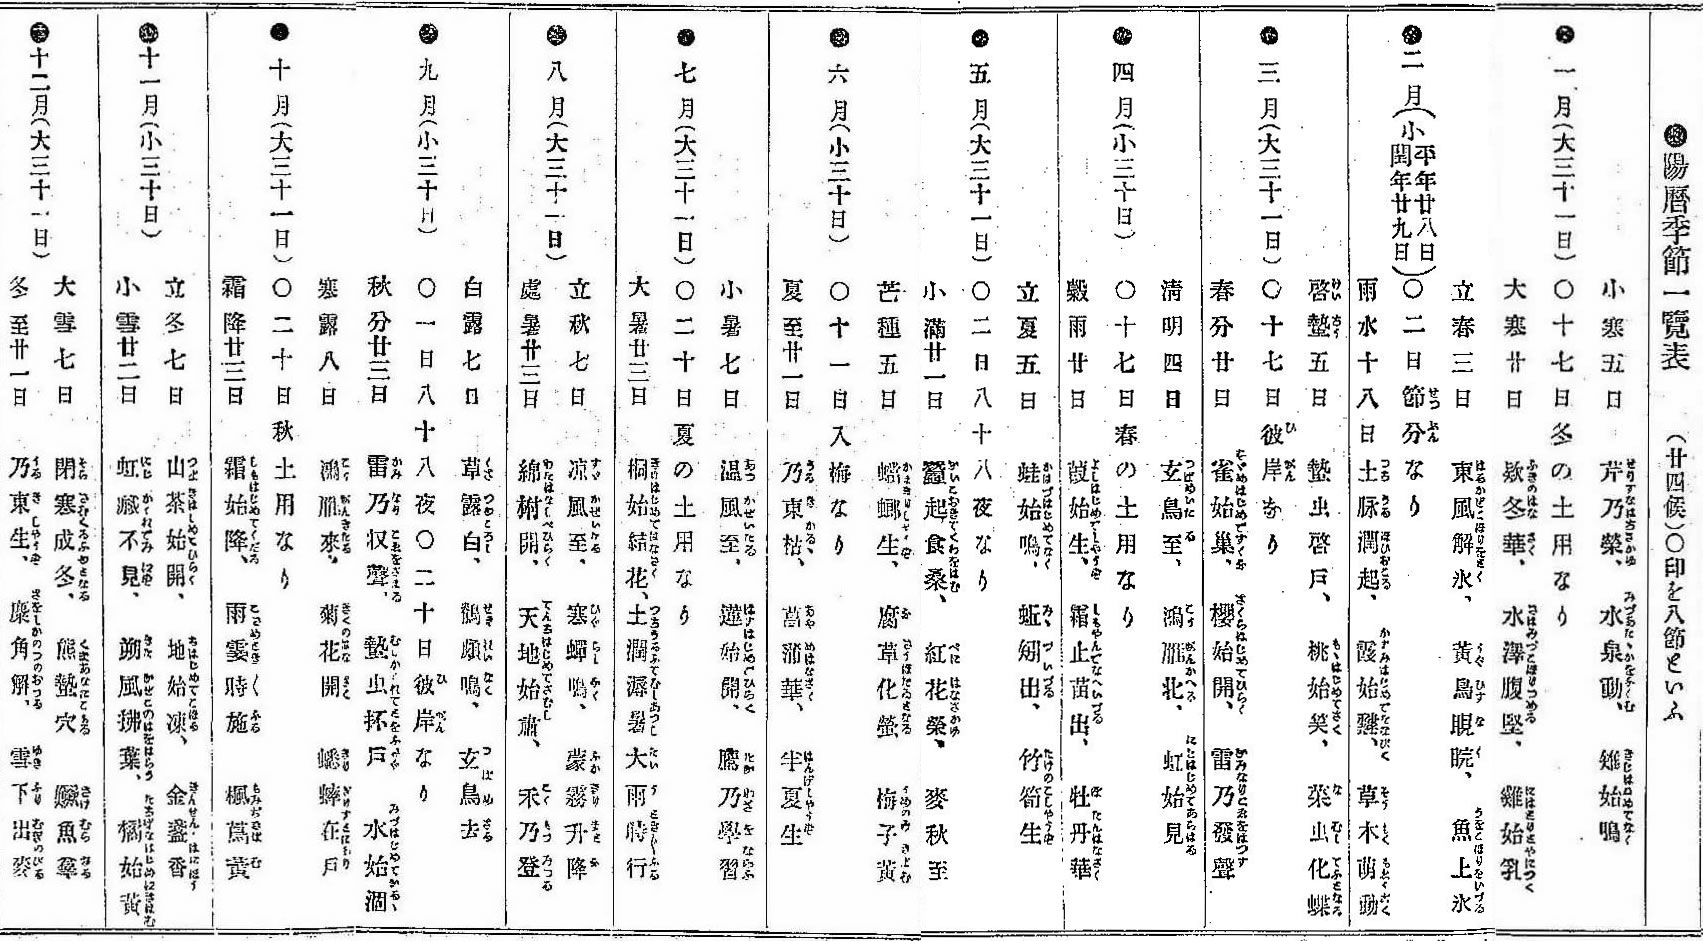 ●陽曆季節一覽表　（廿四候）〇印を八節といふ
●一月（大三十一日）
小寒五日　芹乃榮、水泉動、雉始鳴
〇十七日冬の土用なり
大寒廿日　欵冬華、水澤腹堅、雞始乳
●二月（小平年廿八日閏年廿九日）
立春三日　東風解氷、黃鳥睍睆、魚上氷
〇二日節分なり
雨水十八日　土脉潤起、霞始靆、草木萌動
●三月（大三十一日）
啓蟄五日　蟄虫啓戸、桃始笑、菜虫化蝶
〇十七日彼岸なり
春分廿日　雀始巢、櫻始開、雷乃發聲
●四月（小三十日）
淸明四日　玄鳥至、鴻雁北、虹始見
〇十七日春の土用なり
穀雨廿日　葭始生、霜止苗出、牡丹華
●五月（大三十一日）
立夏五日　蛙始鳴、蚯蚓出、竹筍生
〇二日八十八夜なり
小滿廿一日　蠶起食桑、紅花榮、麥秋至
●六月（小三十日）
芒種五日　蟷螂生、腐草化螢、梅子黃
〇十一日入梅なり
夏至廿一日　乃東枯、菖蒲華、半夏生
●七月（大三十一日）
小暑七日　温風至、蓮始開、鷹乃學習
〇二十日夏の土用なり
大暑廿三日　桐始結花、土潤溽暑、大雨時行
●八月（大三十一日）
立秋七日　凉風至、寒蟬鳴、蒙霧升降
處暑廿三日　綿柎開、天地始肅、禾乃登
●九月（小三十日）
白露七日　草露白、鶺鴒鳴、玄鳥去
〇一日八十八夜〇二十日彼岸なり
秋分廿三日　雷乃収聲、蟄虫坏戸　水始涸
●十月（大三十一日）
寒露八日　鴻雁來、菊花開　蟋蟀在戸
〇二十日秋土用なり
霜降廿三日　霜始降、雨霎時施　楓蔦黃
●十一月（小三十日）
立冬七日　山茶始開、地始凍、金盞香
小雪廿二日　虹藏不見、朔風拂葉、橘始黃
●十二月（大三十一日）
大雪七日　閉寒成冬、熊蟄穴　鱖魚羣
冬至廿一日　乃東生、麋角解、雪下出麥